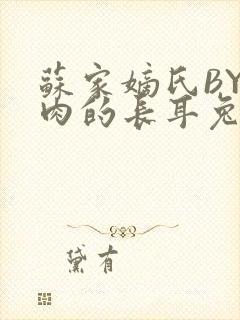 蘇家嫡氏BY
肉的長耳兔
黛有